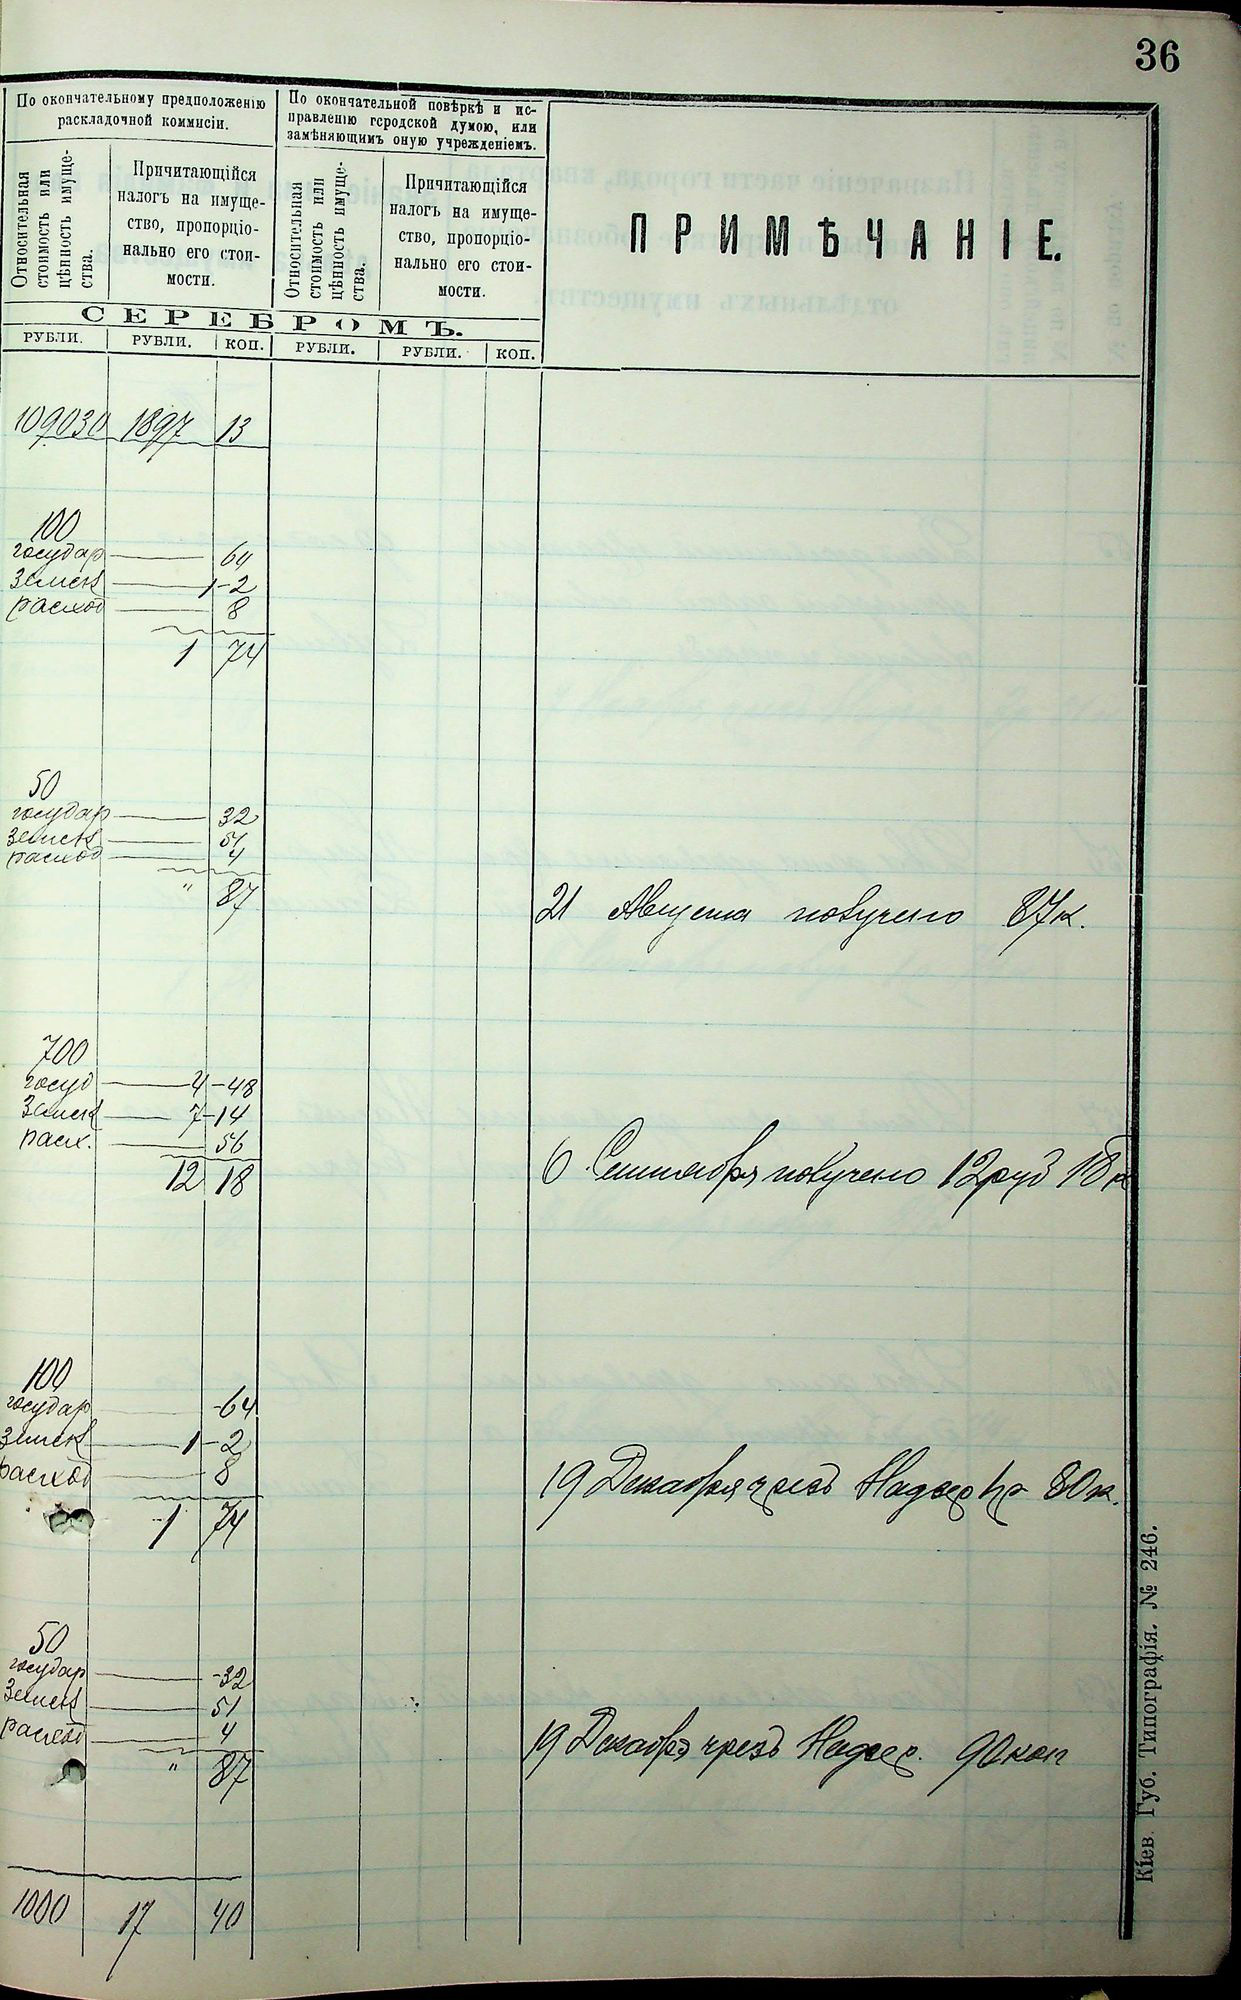 36
По окончательному предположенію
раскладочной коммисіи.
По окончательной повѣркѣ и ис-
правленію городской думою, или
замѣняющимъ оную учрежденіемъ.
Относительная
стоимость или
цѣнность имуще-
ства.
Причитающійся
налогъ на имуще-
ство, пропорціо-
нально его стои-
мости.
Относительная
стоимость или
цѣнность имуще-
ства.
Причитающійся
налогъ на имуще-
ство, пропорціо-
нально его стои-
мости.
ПРИМѢЧАНІЕ.
СЕРЕБРОМЪ.
РУБЛИ. РУБЛИ. КОП. РУБЛИ. РУБЛИ. КОП.
109030 1897 13
100
государ 64
земск 1-2
расход 8
1 74
50
государ 32
земск 51
расход 4
" 87
21 Августа получено 87 к.
700
госуд 4-48
земск 7-14
расх. 56
12 18
6 Сентября получено 12 руб 18 к
100
государ 64
земск 1-2
расход 8
1 74
19 Декабря чрезъ Надзер 1 р 80 к.
50
государ 32
земск 51
расход 4
" 87
19 Декабря чрезъ Надзер. 90 коп
1000 17 40
Кіев. Губ. Типографія. № 246.